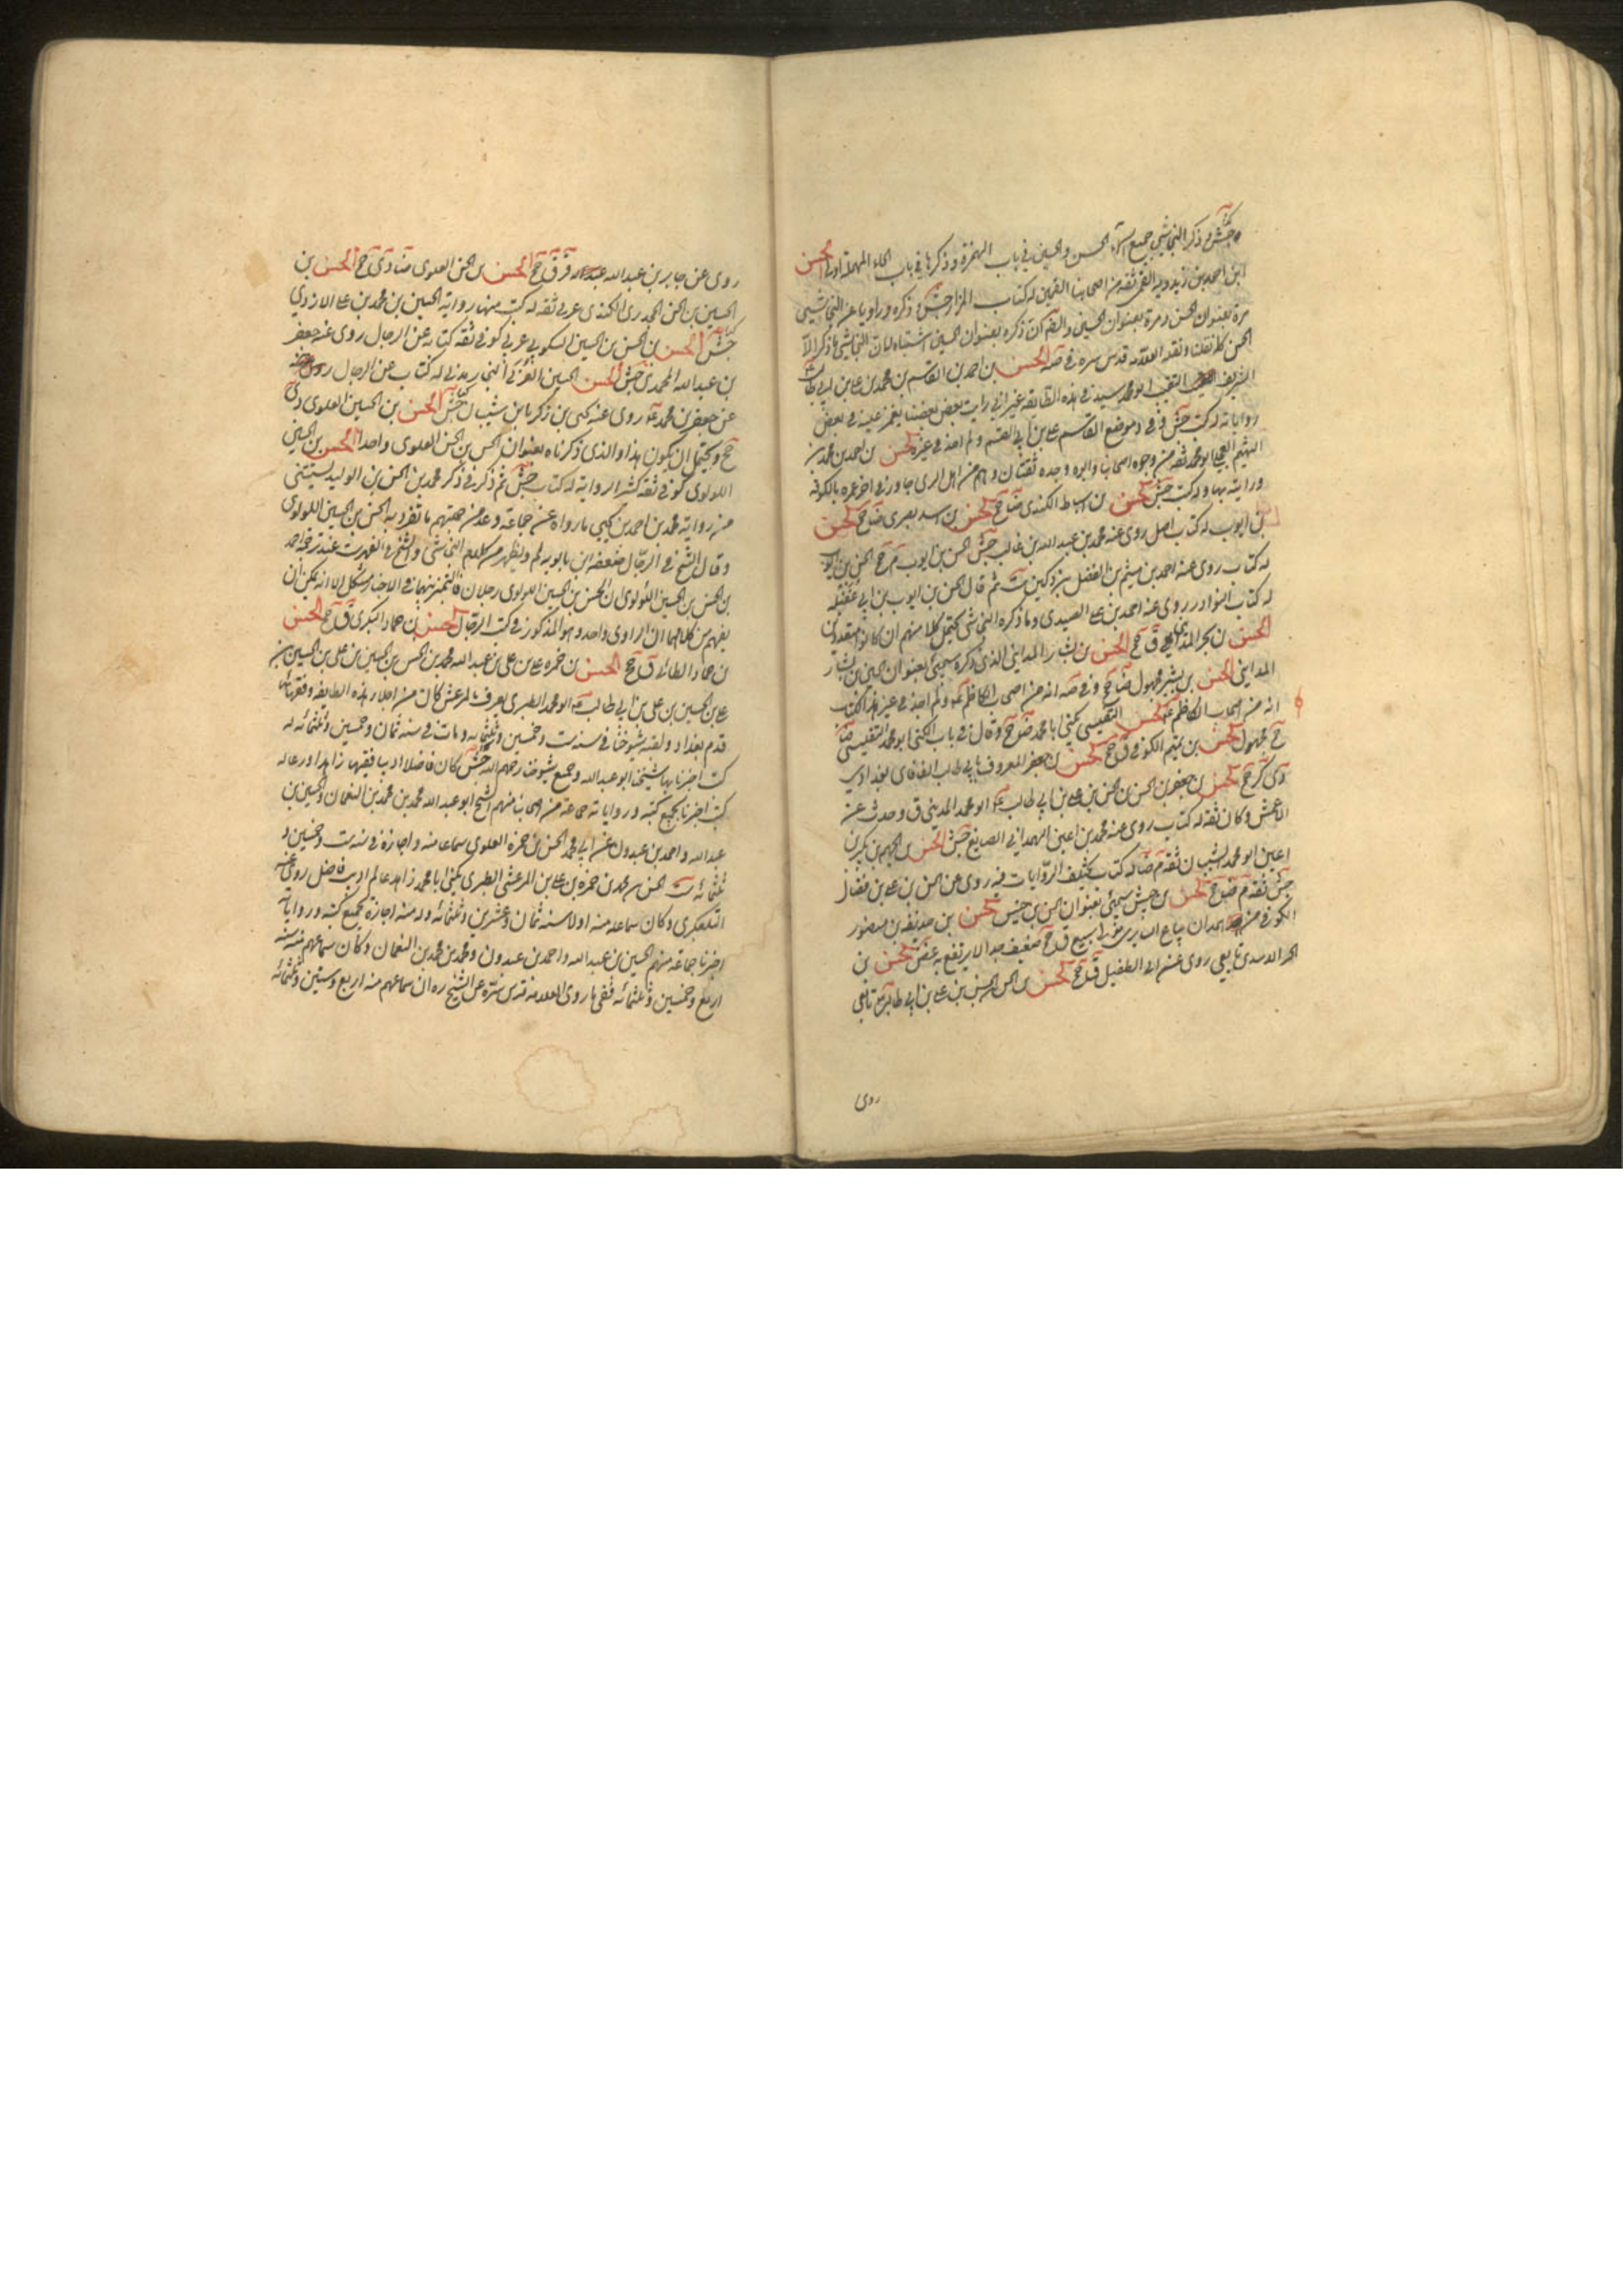 جش وذكر النجاشي جميع اسماء الحسن والحسين في باب الهمزة وذكرها في باب الحاء المهملة اولى الحسن
ابن احمد بن زيدويه القمي ثقة من اصحابنا القميين له كتاب المزار جش وذكره
مرة بعنوان الحسن ومرة بعنوان الحسين ذكره بعنوان الحسين اشتباه لان النجاشي ما ذكر الا
الحسن كما نقلنا ونقله العلامة قدس سره في صه الحسن بن احمد بن القاسم بن محمد بن علي بن ابي طالب
الشريف النقيب ابو محمد سيد في هذه الطائفة غير اني رايت بعض بعضنا يغمز عليه في بعض
رواياته له كتب جش وفي د موضع القاسم علي بن ابي القسم ولم اجد في غيره الحسن بن احمد بن محمد بن
الهيثم العجلي ابو محمد ثقة من وجوه اصحابنا وابوه وجده ثقتان وهم من اهل الري جاور في اخر عمره بالكوفة
ورايته بها وله كتب جش الحسن بن اسباط الكندي ضا جخ الحسن بن اسد بصري ضا جخ الحسن
بن ايوب له كتاب اصل روى عنه محمد بن عبد الله بن غالب جش الحسن بن ايوب م جخ الحسن بن ايوب
له كتاب روى عنه احمد بن ميثم بن الفضل بن دكين ست ثم قال الحسن بن ايوب بن ابي عقيلة
له كتاب النوادر روى عنه احمد بن علي الصيدي وما ذكره النجاشي يحتمل كلا منهم ان كانوا متعددين
الحسن بن بحر المدايني ق جخ الحسن بن بشار المدايني الذي ذكره سيجيء بعنوان الحسين بن بشار
المدايني الحسن بن بشير مجهول ضا جخ وفي صه انه من اصحاب الكاظم ع ولم اجد في غيره هذا الكتاب
انه من اصحاب الكاظم ع الحسن التفليسي يكنى ابا محمد ضا جخ وقال في باب الكنى ابو محمد التفليسي ضا
جخ مجهول الحسن بن تميم الكوفي ق جخ الحسن بن جعفر المعروف بابي طالب الفافاي بغدادي
دي كر جخ الحسن بن جعفر بن الحسن بن الحسن بن علي بن ابي طالب ع ابو محمد المديني ق وحدث عن
الاعمش وكان ثقة له كتاب روى عنه محمد بن اعين الهمداني الصايغ جش الحسن بن الجهم بن بكير بن
اعين ابو محمد الشيباني ثقة م ضا له كتاب تختلف الروايات فيه روى عن الحسن بن علي بن فضال
جش ثقة م ضا جخ الحسن بن حبيش سيجيء بعنوان الحسن بن خنيس الحسن بن حذيفة بن منصور
الكوفي من همدان بياع السابري مولى سبيع ق جخ ضعيف جدا لا يرتفع به غض الحسن بن
الحر الاسدي تابعي روى عن ابي الطفيل ق جخ الحسن بن الحسن بن الحسن بن علي بن ابي طالب ع تابعي
روى
روى عن جابر بن عبد الله قر ق جخ الحسن بن الحسن العلوي ضا دي جخ الحسن بن
الحسين بن الحسن الجحدري الكندي عربي ثقة له كتب منها رواية الحسين بن محمد بن علي الازدي
جش الحسن بن الحسن بن الحسين السكوني عربي كوفي ثقة كتابه عن الرجال روى عنه جعفر
بن عبد الله المحمدي جش الحسن بن الحسين العرني النجار مدني له كتاب عن الرجال
عن جعفر بن محمد ع روى عنه يحيى بن زكريا بن شيبان كتابه جش الحسن بن الحسين العلوي دي
جخ ويحتمل ان يكون هذا والذي ذكرناه بعنوان الحسن بن الحسن العلوي واحدا الحسن بن الحسين
اللولوي كوفي ثقة كثير الرواية له كتاب جش ثم ذكر في ذكر محمد بن الحسن بن الوليد يستثني
من رواية محمد بن احمد بن يحيى ما رواه عن جماعة وعد من جملتهم ما تفرد به الحسن بن الحسين اللولوي
وقال الشيخ في الرجال ضعفه ابن بابويه لم ويظهر من كلام النجاشي والشيخ في الفهرست عند ترجمة احمد
بن الحسن بن الحسين اللؤلوي ان الحسن بن الحسين اللولوي رجلان فالتمييز بينهما في الاخبار مشكل الا انه يمكن ان
يفهم من كلامهما ان الراوي واحد وهو المذكور في كتب الرجال الحسن بن حماد البكري ق جخ الحسن
بن حماد الطائي ق جخ الحسن بن حمزة بن علي بن عبد الله بن محمد بن الحسن بن الحسين بن علي بن الحسين بن
علي بن الحسين بن علي بن ابي طالب ع ابو محمد الطبري يعرف بالمرعش كان من اجلاء هذه الطائفة وفقهائها
قدم بغداد ولقيه شيوخنا في سنة ست وخمسين وثلثمائة ومات في سنة ثمان وخمسين وثلثمائة له
كتب اخبرنا بها شيخنا ابو عبد الله وجميع شيوخنا رحمهم الله جش كان فاضلا اديبا فقيها زاهدا ورعا له
كتب اخبرنا بجميع كتبه ورواياته جماعة من اصحابنا منهم الشيخ ابو عبد الله محمد بن محمد بن النعمان والحسين بن
عبد الله واحمد بن عبدون عن ابي محمد الحسن بن حمزة العلوي سماعا منه واجازة في سنة ست وخمسين و
ثلثمائة ست الحسن بن محمد بن حمزة بن علي بن المرعشي الطبري يكنى ابا محمد زاهد عالم اديب فاضل روى عنه
التلعكبري وكان سماعه منه اولا سنة ثمان وعشرين وثلثمائة وله منه اجازة بجميع كتبه ورواياته
اخبرنا جماعة منهم الحسين بن عبيد الله واحمد بن عبدون ومحمد بن محمد بن النعمان وكان سماعهم منه سنة
اربع وخمسين وثلثمائة ففي ما روى العلامة قدس سره عن الشيخ ره ان سماعهم منه اربع وستين وثلثمائة